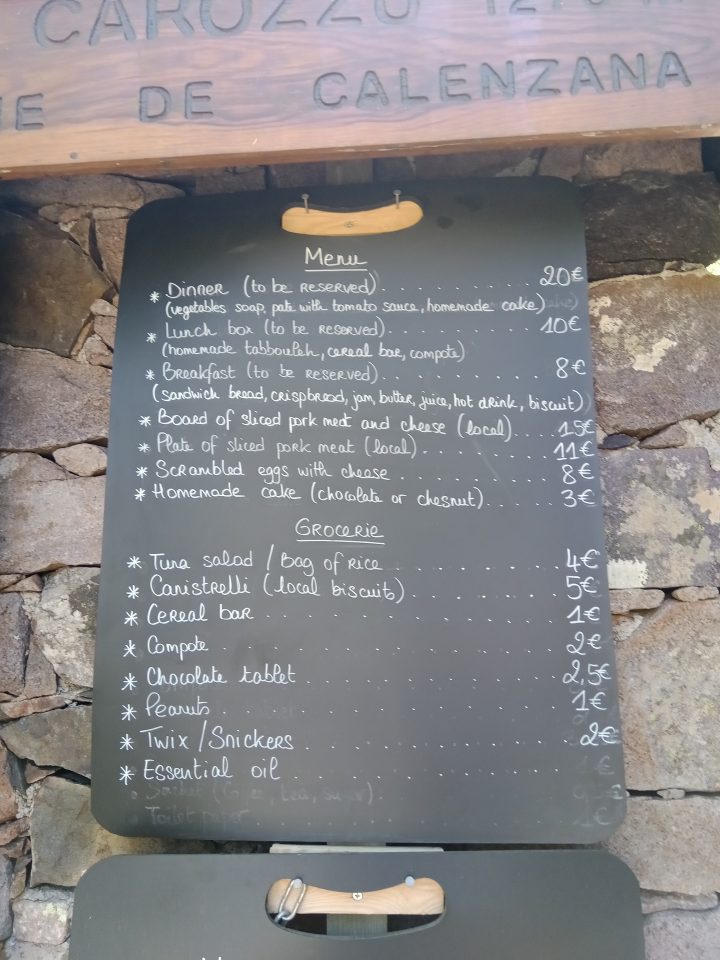 CAROZZU 1270 M
UE DE CALENZANA
Menu
* Dinner (to be reserved). . . . . . . . 20€
(vegetables soap, pate with tomato sauce, homemade cake)
* Lunch box (to be reserved). . . . . . . . 10€
(homemade tabbouleh, cereal bar, compote)
* Breakfast (to be reserved). . . . . . . . 8€
(sandwich bread, crispbread, jam, butter, juice, hot drink, biscuit)
* Board of sliced pork meat and cheese (local). . . . 15€
* Plate of sliced pork meat (local). . . . . . . 11€
* Scrambled eggs with cheese . . . . . . . . 8€
* Homemade cake (chocolate or chesnut). . . . . 3€
Grocerie
* Tuna salad / Bag of rice . . . . . . . . 4€
* Canistrelli (local biscuits). . . . . . . . 5€
* Cereal bar . . . . . . . . . . 1€
* Compote . . . . . . . . . . 2€
* Chocolate tablet . . . . . . . . . 2,5€
* Peanuts . . . . . . . . . . 1€
* Twix / Snickers . . . . . . . . . 2€
* Essential oil . . . . . . . . .
Toilet paper . . . . . . . . 1€